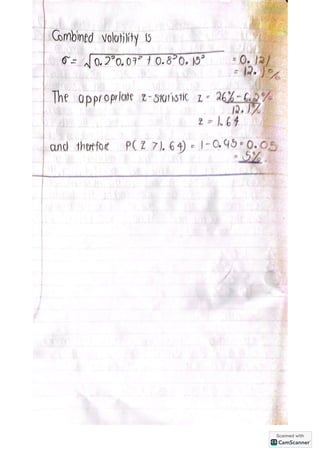 Combined volatility is
σ = √0.2²0.07² + 0.8²0.15² = 0.121
= 12.1%
The appropriate z-statistic z = 26%-6.2%
12.1%
z = 1.64
and therefore P(Z > 1.64) = 1-0.95 = 0.05
= 5%
Scanned with
CS CamScanner